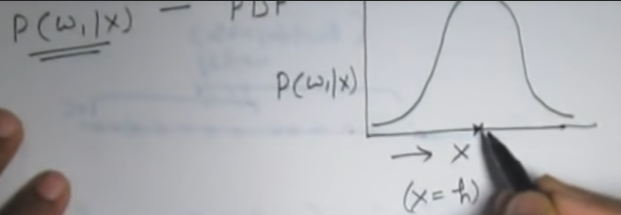 P(ω₁|x) — PDF
P(ω₁|x)
→ x
(x = h)